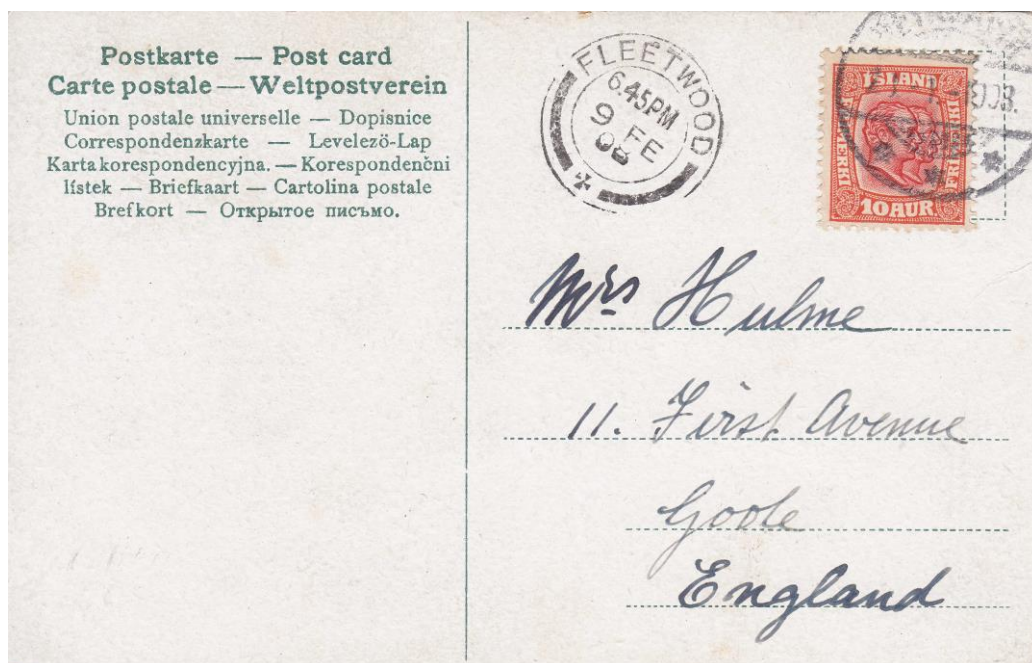 Postkarte — Post card
Carte postale — Weltpostverein
Union postale universelle — Dopisnice
Correspondenzkarte — Levelező-Lap
Karta korespondencyjna. — Korespondenčni
lístek — Briefkaart — Cartolina postale
Brefkort — Открытое письмо.
FLEETWOOD
6.45PM
9 FE
08
ISLAND
FRIMERKI
10 AUR
Mrs Hulme
11. First Avenue
Goole
England